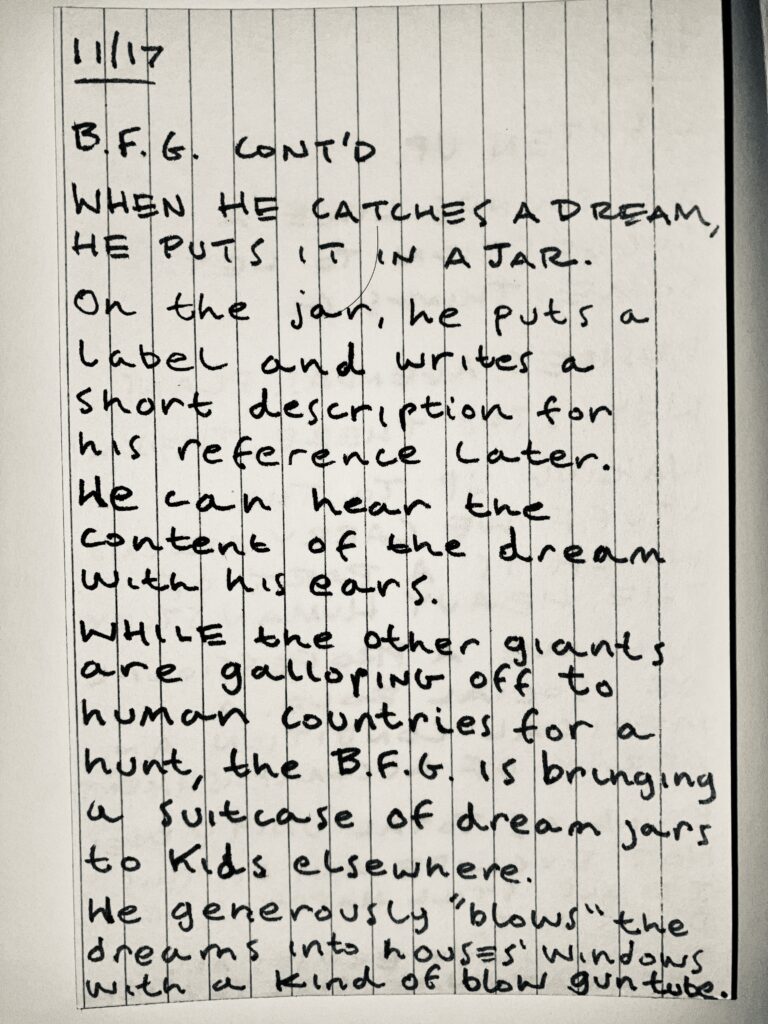 11/17
B.F.G. CONT'D
WHEN HE CATCHES A DREAM,
HE PUTS IT IN A JAR.
On the jar, he puts a
label and writes a
short description for
his reference later.
He can hear the
content of the dream
with his ears.
WHILE the other giants
are gallopING off to
human countries for a
hunt, the B.F.G. is bringing
a suitcase of dream jars
to kids elsewhere.
He generously "blows" the
dreams into houses' windows
with a kind of blow gun tube.